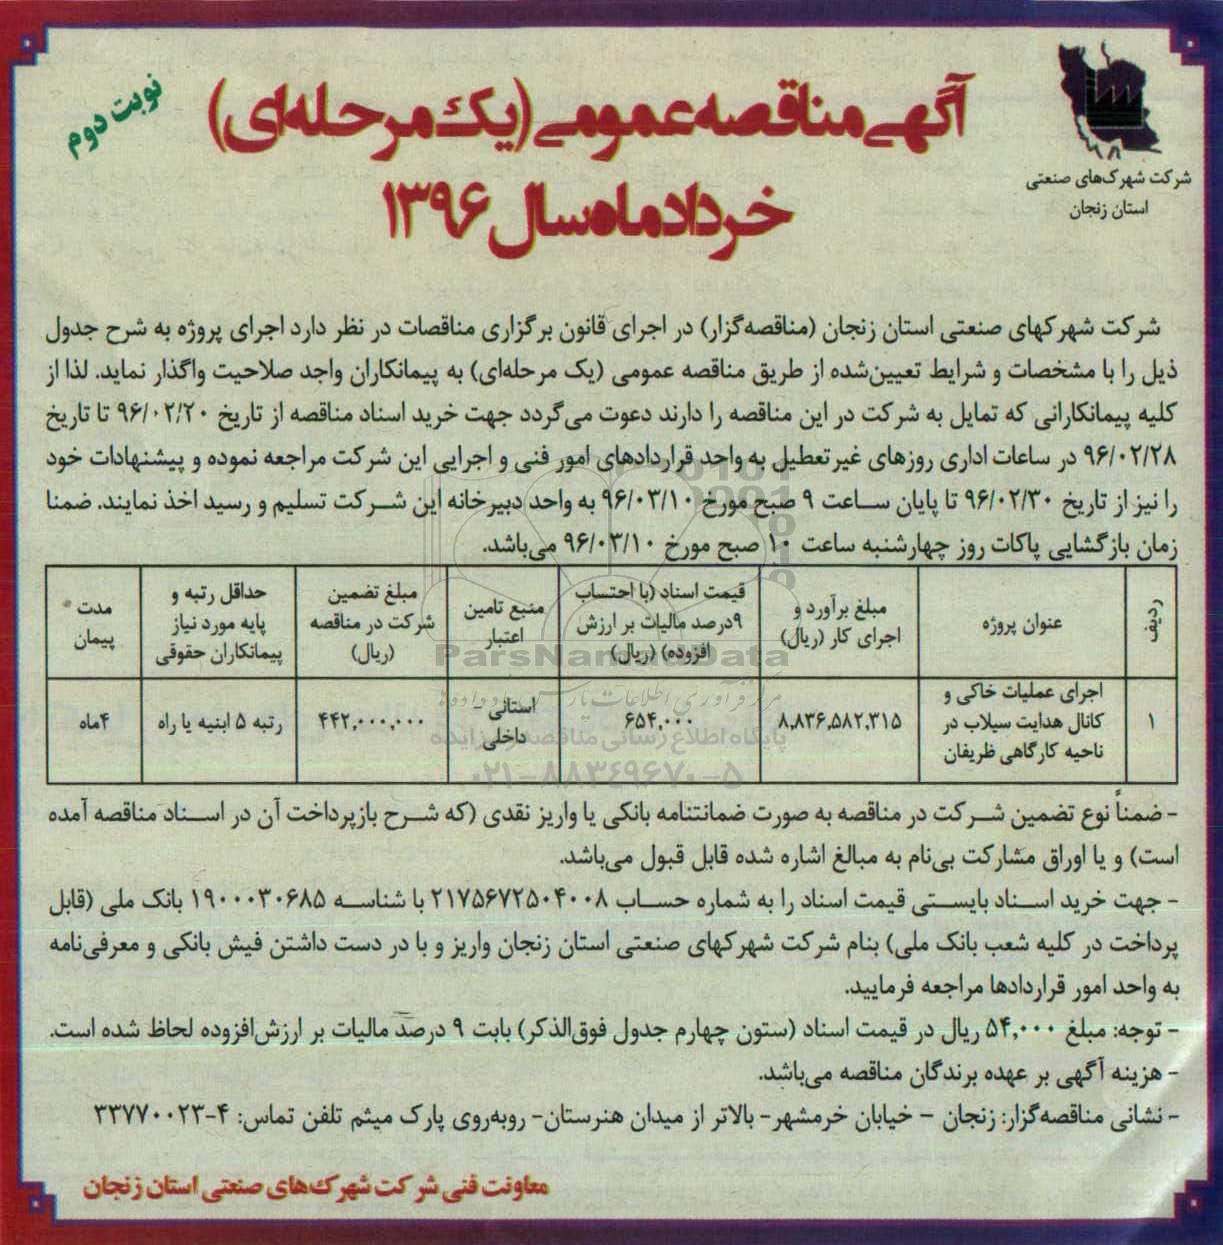 نوبت دوم
آگهی مناقصه عمومی (یک مرحله‌ای)
خردادماه سال ۱۳۹۶
شرکت شهرک‌های صنعتی
استان زنجان
شرکت شهرکهای صنعتی استان زنجان (مناقصه‌گزار) در اجرای قانون برگزاری مناقصات در نظر دارد اجرای پروژه به شرح جدول
ذیل را با مشخصات و شرایط تعیین‌شده از طریق مناقصه عمومی (یک مرحله‌ای) به پیمانکاران واجد صلاحیت واگذار نماید. لذا از
کلیه پیمانکارانی که تمایل به شرکت در این مناقصه را دارند دعوت می‌گردد جهت خرید اسناد مناقصه از تاریخ ۹۶/۰۲/۲۰ تا تاریخ
۹۶/۰۲/۲۸ در ساعات اداری روزهای غیرتعطیل به واحد قراردادهای امور فنی و اجرایی این شرکت مراجعه نموده و پیشنهادات خود
را نیز از تاریخ ۹۶/۰۲/۳۰ تا پایان ساعت ۹ صبح مورخ ۹۶/۰۳/۱۰ به واحد دبیرخانه این شرکت تسلیم و رسید اخذ نمایند. ضمنا
زمان بازگشایی پاکات روز چهارشنبه ساعت ۱۰ صبح مورخ ۹۶/۰۳/۱۰ می‌باشد.
ردیف
عنوان پروژه
مبلغ برآورد و
اجرای کار (ریال)
قیمت اسناد (با احتساب
۹درصد مالیات بر ارزش
افزوده) (ریال)
منبع تامین
اعتبار
مبلغ تضمین
شرکت در مناقصه
(ریال)
حداقل رتبه و
پایه مورد نیاز
پیمانکاران حقوقی
مدت
پیمان
۱
اجرای عملیات خاکی و
کانال هدایت سیلاب در
ناحیه کارگاهی ظریفان
۸,۸۳۶,۵۸۲,۳۱۵
۶۵۴,۰۰۰
استانی -
داخلی
۴۴۲,۰۰۰,۰۰۰
رتبه ۵ ابنیه یا راه
۴ماه
ParsNamadData
پایگاه اطلاع رسانی مناقصه و مزایده
۰۲۱-۸۸۳۴۹۶۷۰-۵
- ضمناً نوع تضمین شرکت در مناقصه به صورت ضمانتنامه بانکی یا واریز نقدی (که شرح بازپرداخت آن در اسناد مناقصه آمده
است) و یا اوراق مشارکت بی‌نام به مبالغ اشاره شده قابل قبول می‌باشد.
- جهت خرید اسناد بایستی قیمت اسناد را به شماره حساب ۲۱۷۵۶۷۲۵۰۴۰۰۸ با شناسه ۱۹۰۰۰۳۰۶۸۵ بانک ملی (قابل
پرداخت در کلیه شعب بانک ملی) بنام شرکت شهرکهای صنعتی استان زنجان واریز و با در دست داشتن فیش بانکی و معرفی‌نامه
به واحد امور قراردادها مراجعه فرمایید.
- توجه: مبلغ ۵۴,۰۰۰ ریال در قیمت اسناد (ستون چهارم جدول فوق‌الذکر) بابت ۹ درصد مالیات بر ارزش‌افزوده لحاظ شده است.
- هزینه آگهی بر عهده برندگان مناقصه می‌باشد.
- نشانی مناقصه‌گزار: زنجان - خیابان خرمشهر- بالاتر از میدان هنرستان- روبه‌روی پارک میثم تلفن تماس: ۴-۳۳۷۷۰۰۲۳
معاونت فنی شرکت شهرک‌های صنعتی استان زنجان